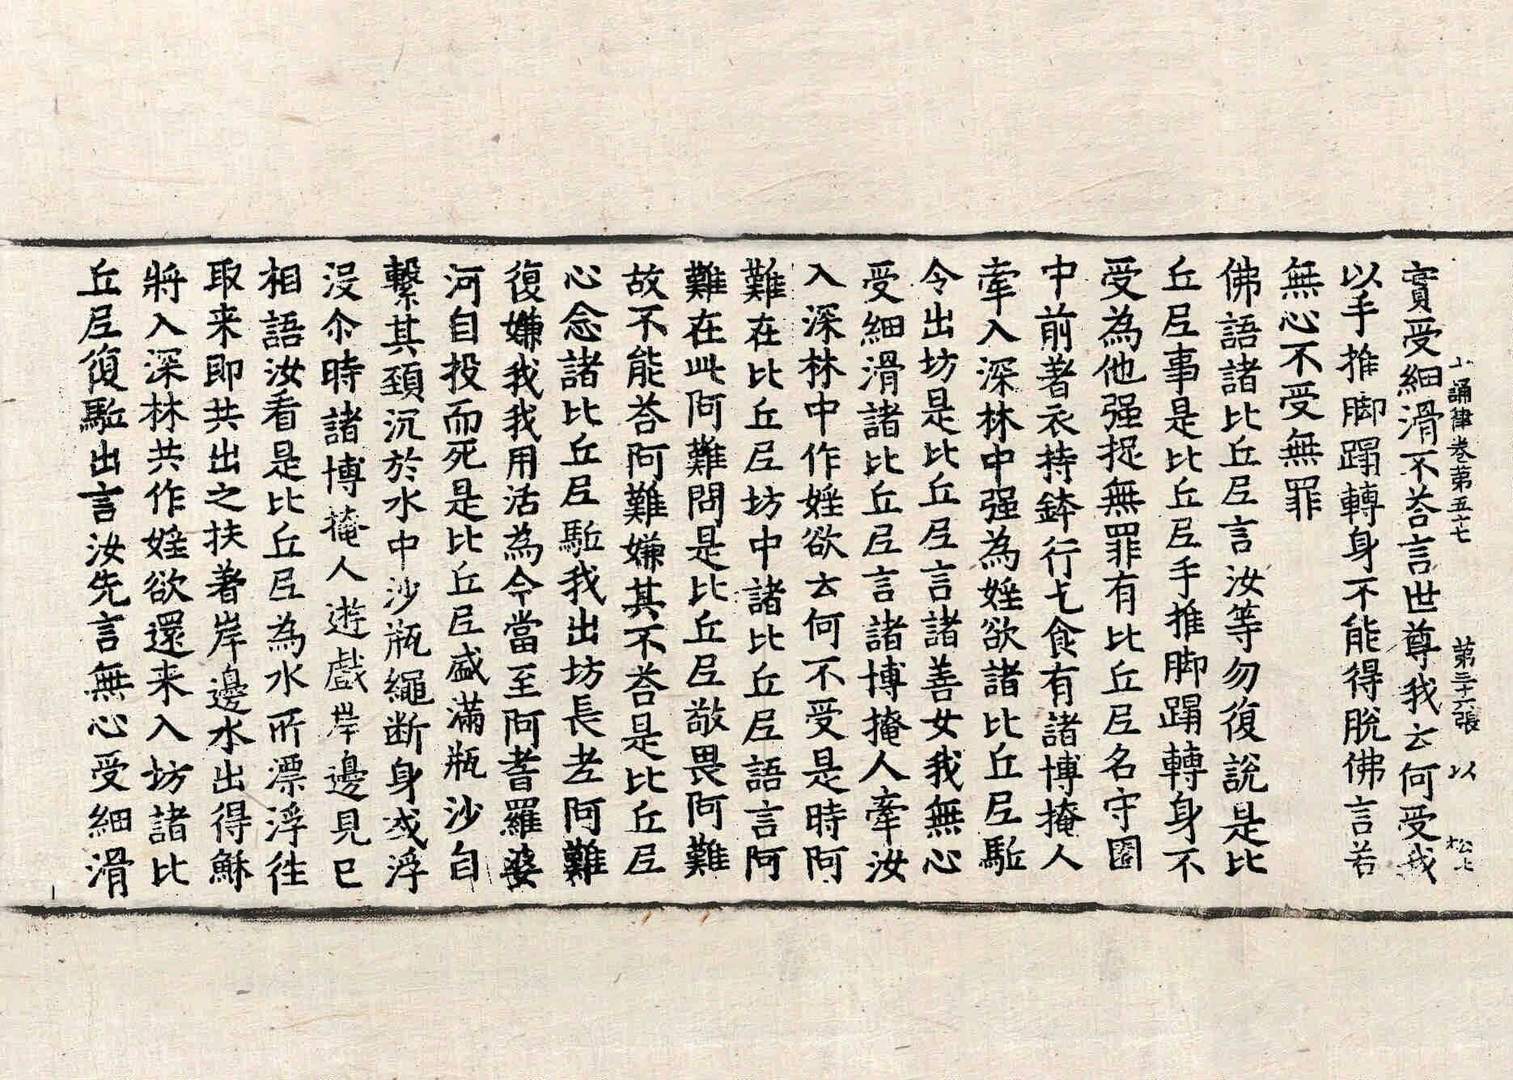 十誦律卷苐五十七 苐三十六張 以 松七
實受細滑不荅言世尊我云何受我
以手推脚蹋轉身不能得脫佛言若
無心不受無罪
佛語諸比丘尼言汝等勿復說是比
丘尼事是比丘尼手推脚蹋轉身不
受為他强捉無罪有比丘尼名守園
中前著衣持鉢行乞食有諸博掩人
牽入深林中强為婬欲諸比丘尼駈
令出坊是比丘尼言諸善女我無心
受細滑諸比丘尼言諸博掩人牽汝
入深林中作婬欲云何不受是時阿
難在比丘尼坊中諸比丘尼語言阿
難在此阿難問是比丘尼敬畏阿難
故不能荅阿難嫌其不荅是比丘尼
心念諸比丘尼駈我出坊長老阿難
復嫌我我用活為今當至阿耆羅婆
河自投而死是比丘尼盛滿瓶沙自
繫其頚沉於水中沙瓶繩断身或浮
沒尒時諸博掩人遊戲岸邊見已
相語汝看是比丘尼為水所漂浮徃
取来即共出之扶著岸邊水出得穌
將入深林共作婬欲還来入坊諸比
丘尼復駈出言汝先言無心受細滑